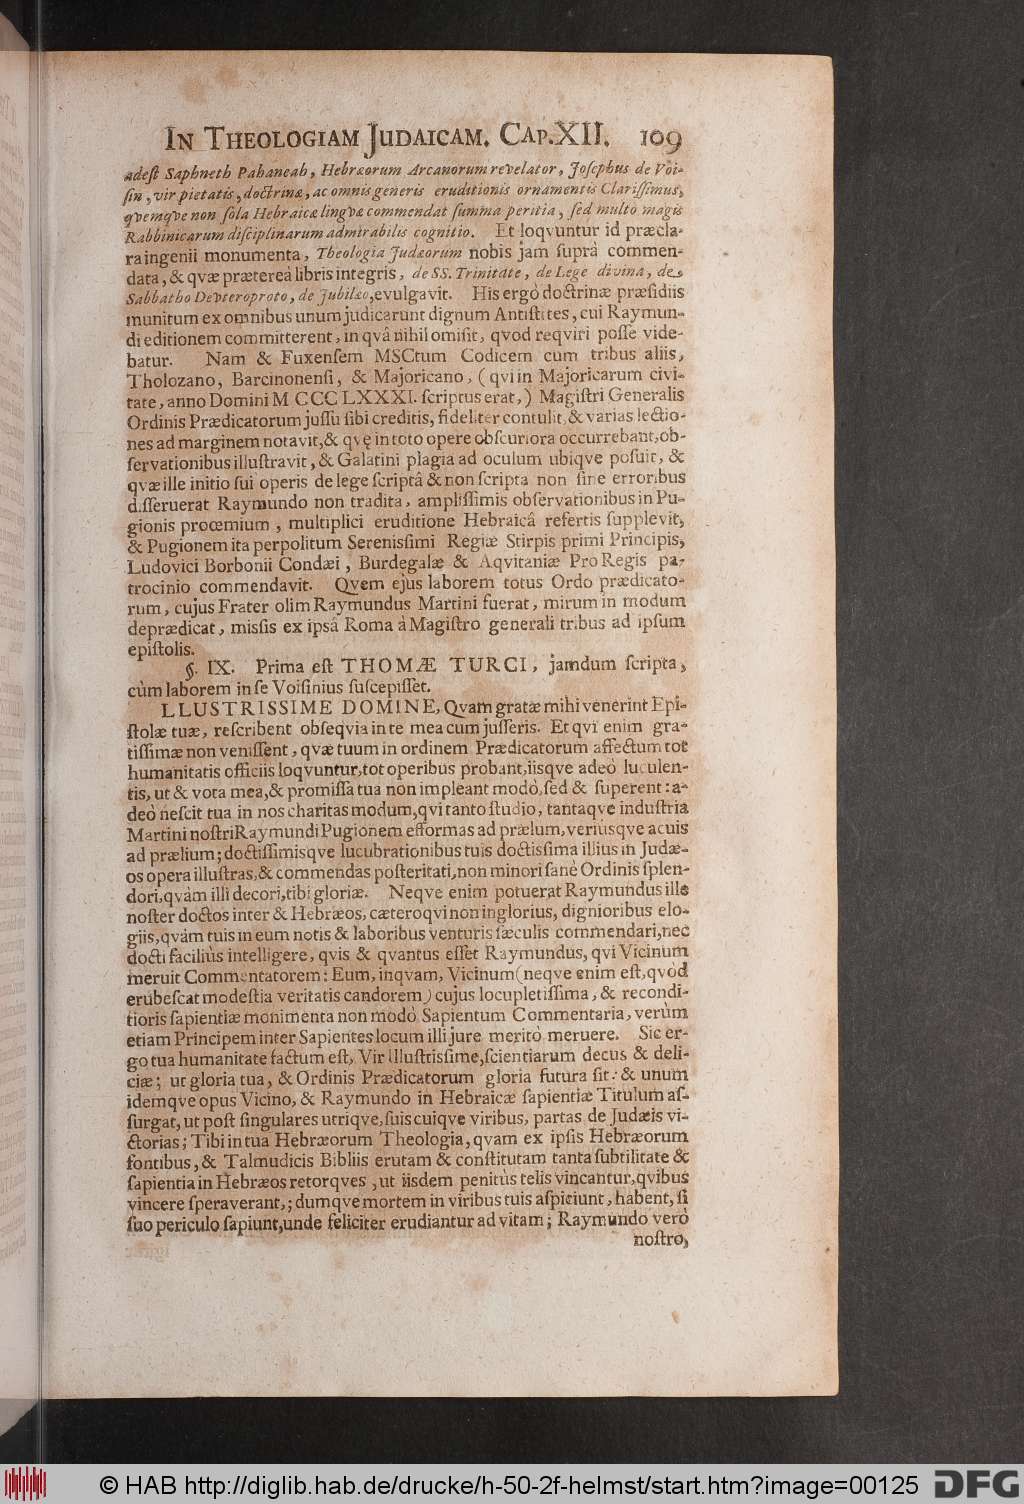 IN THEOLOGIAM JUDAICAM. CAP. XII. 109
adest Saphneth Pahaneah, Hebræorum Arcanorum revelator, Josephus de Voi-
sin, vir pietatis, doctrinæ, ac omnis generis eruditionis ornamentis Clarissimus,
qvemqve non sola Hebraicæ lingvæ commendat summa peritia, sed multo magis
Rabbinicarum disciplinarum admirabilis cognitio. Et loqvuntur id præcla-
ra ingenii monumenta, Theologia Judæorum nobis jam suprà commen-
data, & qvæ prætereà libris integris, de SS. Trinitate, de Lege divina, de
Sabbatho Devteroproto, de Jubilæo, evulgavit. His ergò doctrinæ præsidiis
munitum ex omnibus unum judicarunt dignum Antistites, cui Raymun-
di editionem committerent, in qvâ nihil omisit, qvod reqviri posse vide-
batur. Nam & Fuxensem MSCtum Codicem cum tribus aliis,
Tholozano, Barcinonensi, & Majoricano, (qvi in Majoricarum civi-
tate, anno Domini M CCC LXXXI. scriptus erat,) Magistri Generalis
Ordinis Prædicatorum jussu sibi creditis, fideliter contulit, & varias lectio-
nes ad marginem notavit, & qvę in toto opere obscuriora occurrebant, ob-
servationibus illustravit, & Galatini plagia ad oculum ubiqve posuit, &
qvæ ille initio sui operis de lege scriptâ & non scripta non sine erroribus
disseruerat Raymundo non tradita, amplissimis observationibus in Pu-
gionis proœmium, multiplici eruditione Hebraicâ refertis supplevit,
& Pugionem ita perpolitum Serenissimi Regiæ Stirpis primi Principis,
Ludovici Borbonii Condæi, Burdegalæ & Aqvitaniæ Pro Regis pa-
trocinio commendavit. Qvem ejus laborem totus Ordo prædicato-
rum, cujus Frater olim Raymundus Martini fuerat, mirum in modum
deprædicat, missis ex ipsâ Roma à Magistro generali tribus ad ipsum
epistolis.
§. IX. Prima est THOMÆ TURCI, jamdum scripta,
cùm laborem in se Voisinius suscepisset.
LLUSTRISSIME DOMINE, Qvam gratæ mihi venerint Epi-
stolæ tuæ, rescribent obseqvia in te mea cum jusseris. Et qvi enim gra-
tissimæ non venissent, qvæ tuum in ordinem Prædicatorum affectum tot
humanitatis officiis loqvuntur, tot operibus probant, iisqve adeò luculen-
tis, ut & vota mea, & promissa tua non impleant modò, sed & superent: a-
deò nescit tua in nos charitas modum, qvi tanto studio, tantaqve industria
Martini nostri Raymundi Pugionem efformas ad prælum, veriusqve acuis
ad prælium; doctissimisqve lucubrationibus tuis doctissima illius in Judæ-
os opera illustras, & commendas posteritati, non minori sanè Ordinis splen-
dori, qvàm illi decori, tibi gloriæ. Neqve enim potuerat Raymundus ille
noster doctos inter & Hebræos, cæteroqvi non inglorius, dignioribus elo-
giis, qvàm tuis in eum notis & laboribus venturis sæculis commendari, nec
docti faciliùs intelligere, qvis & qvantus esset Raymundus, qvi Vicinum
meruit Commentatorem: Eum, inqvam, Vicinum (neqve enim est, qvòd
erubescat modestia veritatis candorem) cujus locupletissima, & recondi-
tioris sapientiæ monimenta non modò Sapientum Commentaria, verùm
etiam Principem inter Sapientes locum illi jure meritò meruere. Sic er-
go tua humanitate factum est, Vir Illustrissime, scientiarum decus & deli-
ciæ; ut gloria tua, & Ordinis Prædicatorum gloria futura sit: & unum
idemqve opus Vicino, & Raymundo in Hebraicæ sapientiæ Titulum as-
surgat, ut post singulares utriqve, suis cuiqve viribus, partas de Judæis vi-
ctorias; Tibi in tua Hebræorum Theologia, qvam ex ipsis Hebræorum
fontibus, & Talmudicis Bibliis erutam & constitutam tanta subtilitate &
sapientia in Hebræos retorqves, ut iisdem penitùs telis vincantur, qvibus
vincere speraverant,; dumqve mortem in viribus tuis aspiciunt, habent, si
suo periculo sapiunt, unde feliciter erudiantur ad vitam; Raymundo verò
nostro,
© HAB http://diglib.hab.de/drucke/h-50-2f-helmst/start.htm?image=00125 DFG